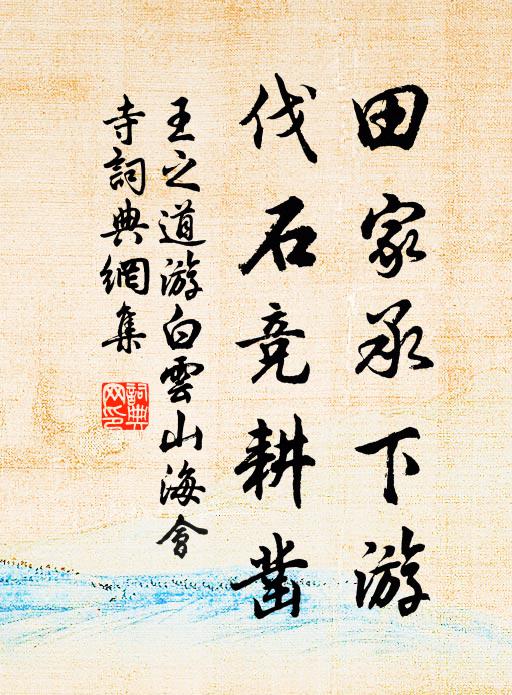 田家承下游
伐石竞耕凿
王之道游白雲山海會
寺詞典網集
詞典网印